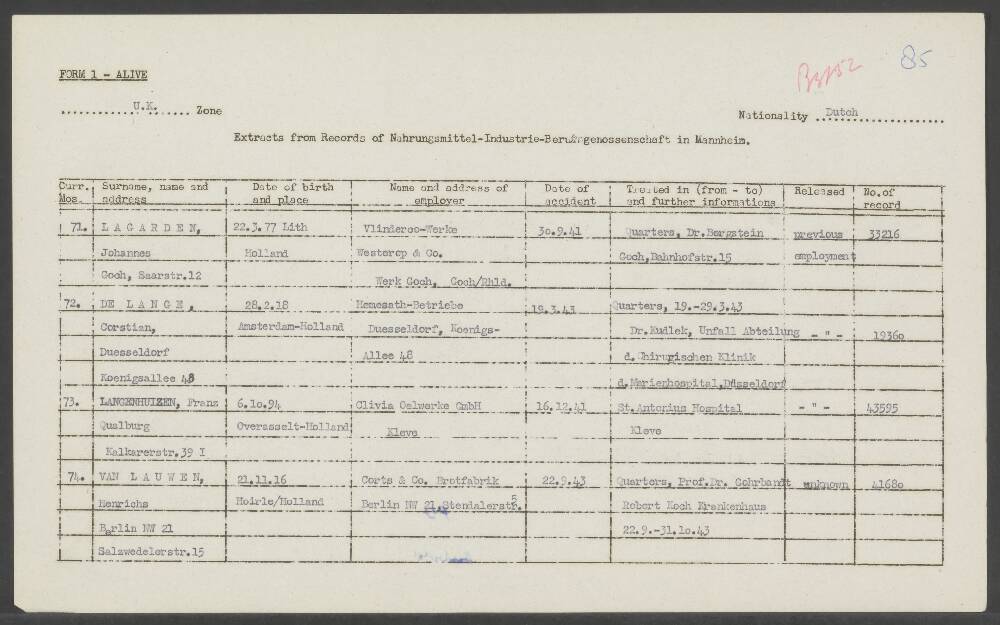 85
FORM 1 - ALIVE
U.K. Zone
Nationality Dutch
Extracts from Records of Nahrungsmittel-Industrie-Berufsgenossenschaft in Mannheim.
Curr. Nos. Surname, name and address Date of birth and place Name and address of employer Date of accident Treated in (from - to) and further informations Released No.of record
71. L A G A R D E N, 22.3.77 Lith Vlinderco-Werke 30.9.41 Quarters, Dr.Bergstein previous 33216
Johannes Holland Westerop & Co. Goch,Bahnhofstr.15 employment
Goch, Saarstr.12 Werk Goch, Goch/Rhld.
72. DE L A N G E, 28.2.18 Hemesath-Betriebe 19.3.43 Quarters, 19.-29.3.43
Corstian, Amsterdam-Holland Duesseldorf, Koenigs- Dr.Kudlek, Unfall Abteilung - " - 1936o
Duesseldorf Allee 48 d. Chirugischen Klinik
Koenigsallee 48 d.Marienhospital,Düsseldorf
73. LANGENHUIZEN, Franz 6.1o.94 Clivia Oelwerke GmbH 16.12.41 St.Antonius Hospital - " - 43595
Qualburg Overasselt-Holland Kleve Kleve
Kalkarerstr.39 I
74. VAN L A U W E N, 21.11.16 Corts & Co. Brotfabrik 22.9.43 Quarters, Prof.Dr. Gohrbandt unknown 4168o
Henrichs Hoirle/Holland Berlin NW 21,Stendalerstr.5 Robert Koch Krankenhaus
Berlin NW 21 22.9.-31.1o.43
Salzwedelerstr.15